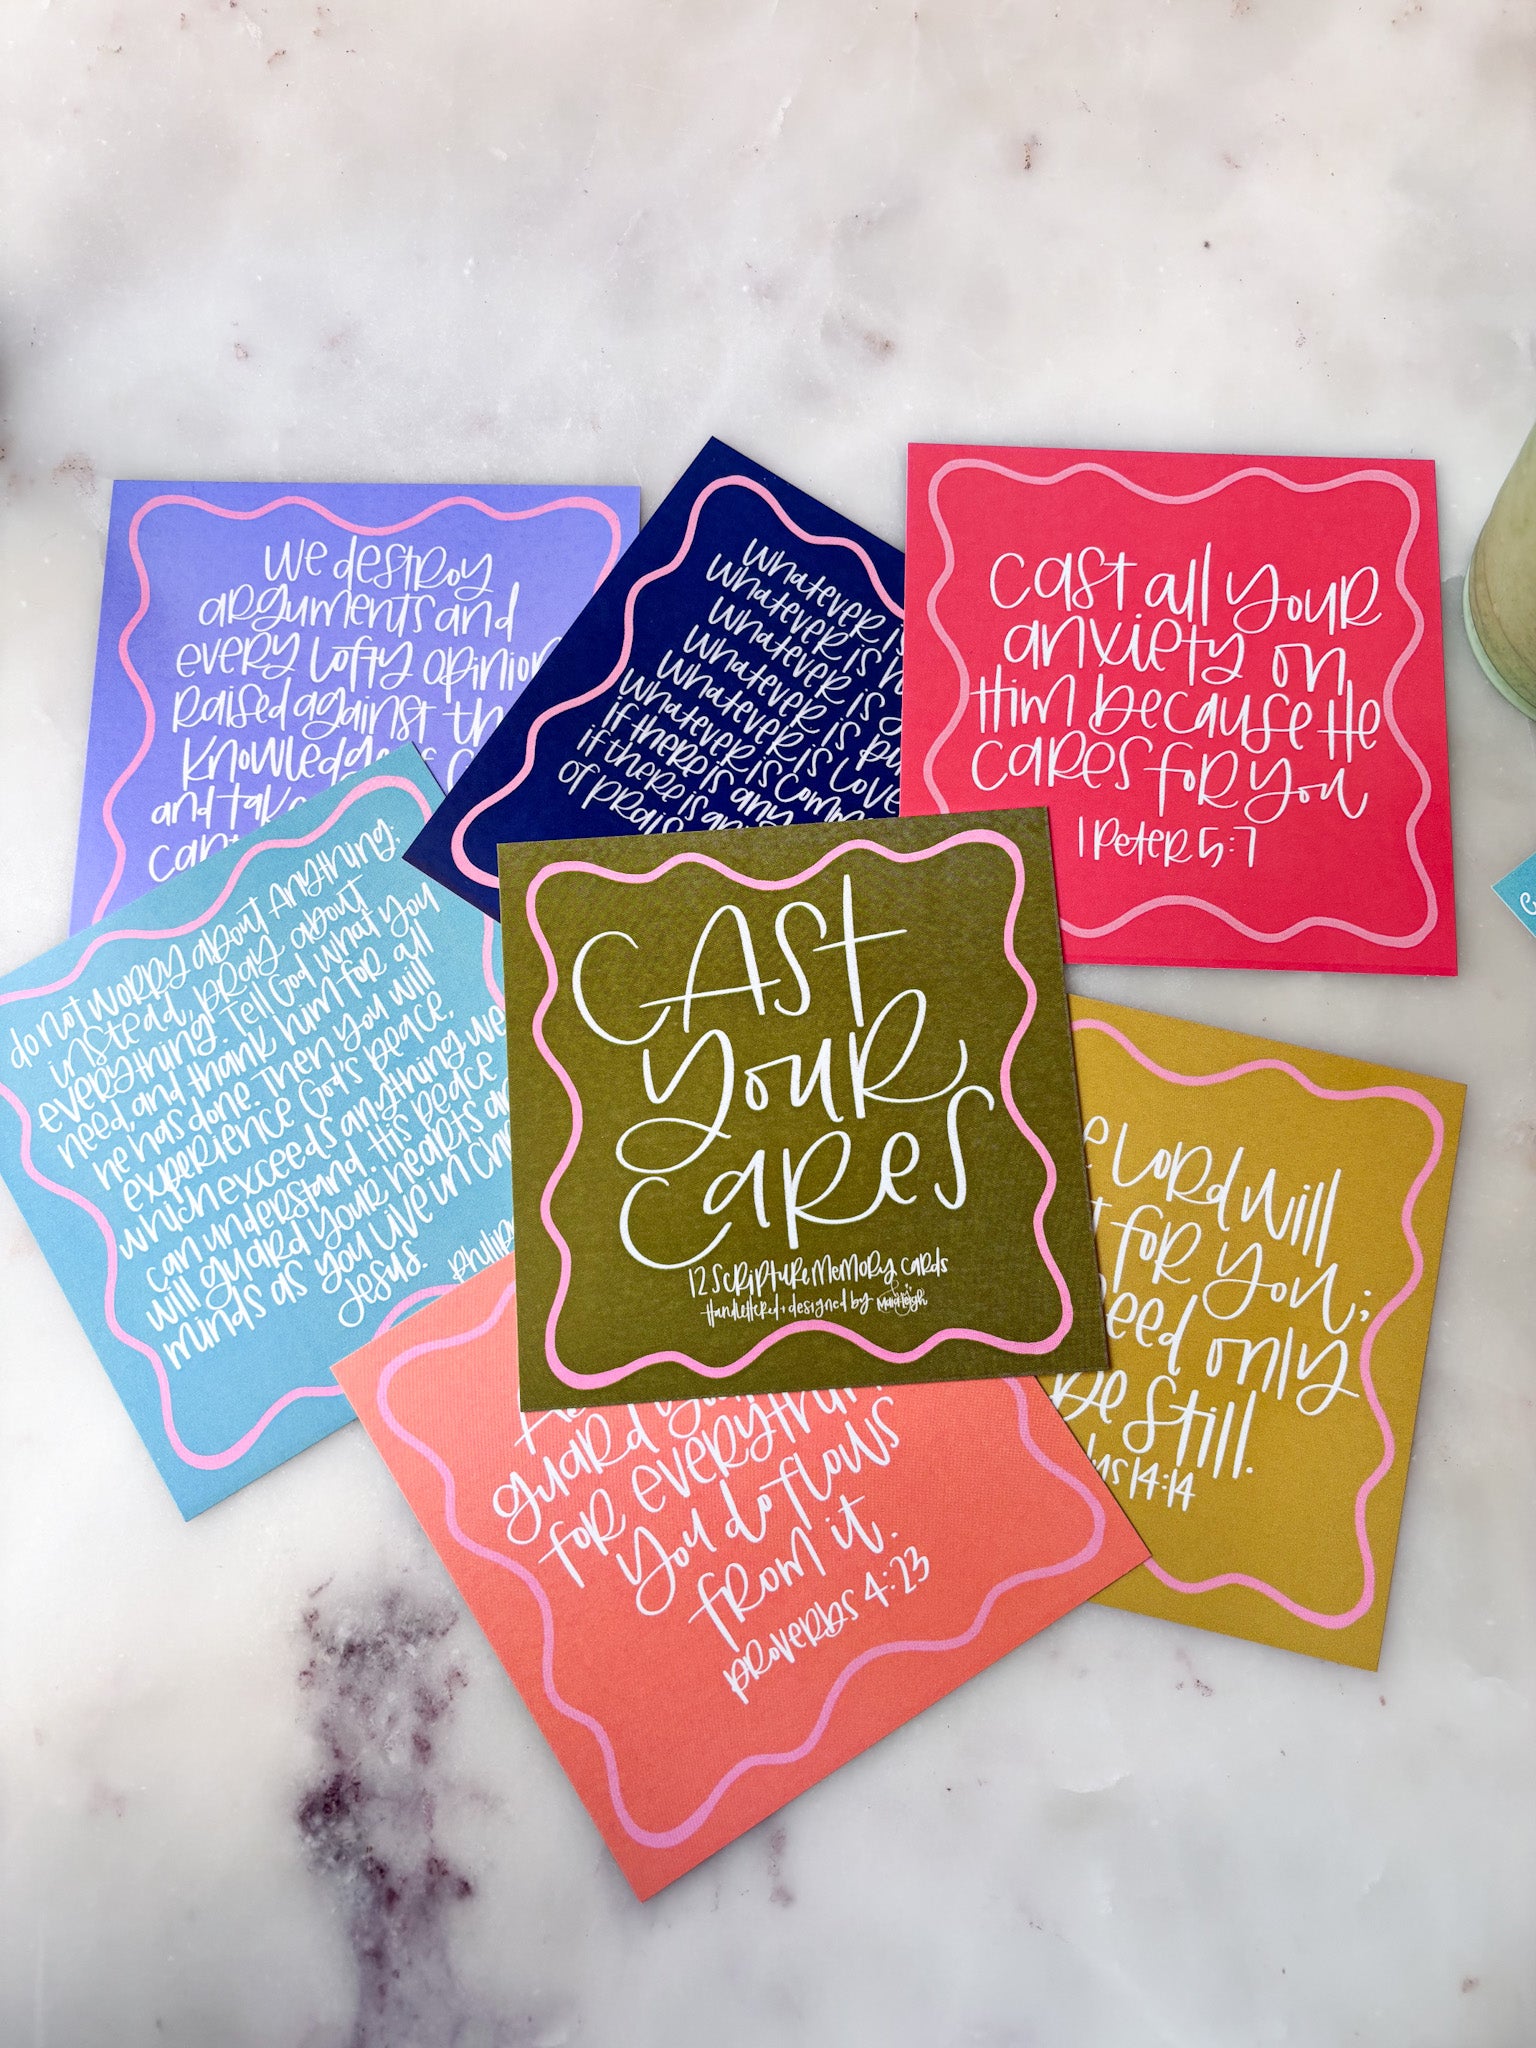 we destroy
arguments and
every lofty opinion
raised against th
knowledge of G
and take
capt
whatever is
whatever is h
whatever is
whatever is pu
whatever is love
whatever is comm
if there is any
if there is an
of prais
cast all your
anxiety on
Him because He
cares for you
1 Peter 5:7
do not worry about anything;
instead, pray about
everything. Tell God what you
need, and thank him for all
he has done. Then you will
experience God's peace,
which exceeds anything we
can understand. His peace
will guard your hearts an
minds as you live in Chr
Jesus.
Philip
Cast
Your
Cares
12 Scripture Memory Cards
Handlettered + designed by
e Lord will
t for you;
eed only
be still.
14:14
guard you
for everythin
you do flows
from it.
Proverbs 4:23